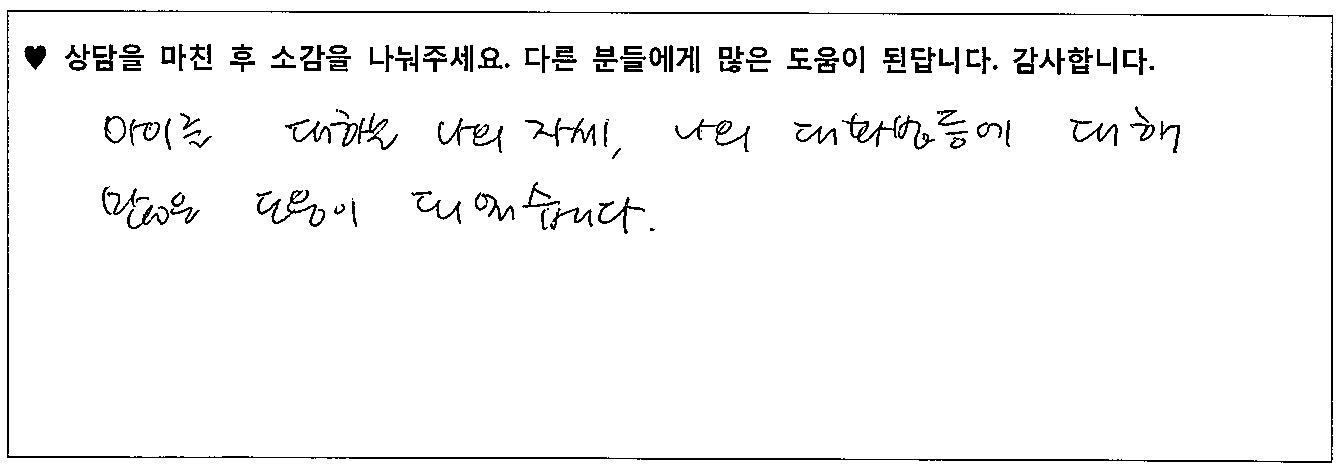 ♥ 상담을 마친 후 소감을 나눠주세요. 다른 분들에게 많은 도움이 된답니다. 감사합니다.
아이를 대하는 나의 자세, 나의 대화법등에 대해
많은 도움이 되었습니다.